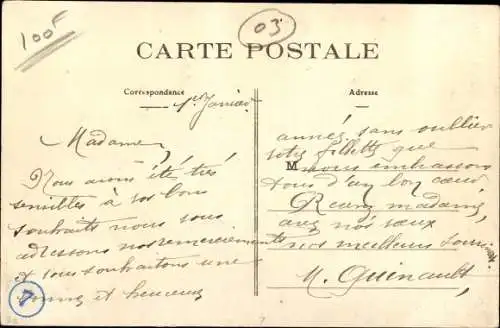 100F
03
CARTE POSTALE
Correspondance
Adresse
1er Janvier
Madame,
Nous avons été très
sensibles à vos bons
souhaits nous vous
adressons nos remerciements
et vous souhaitons une
bonne et heureuse
7
année, sans oublier
votre fillette que
M nous embrassons
tous d'un bon cœur
madame,
avec nos vœux
nos meilleurs
M. Guinault